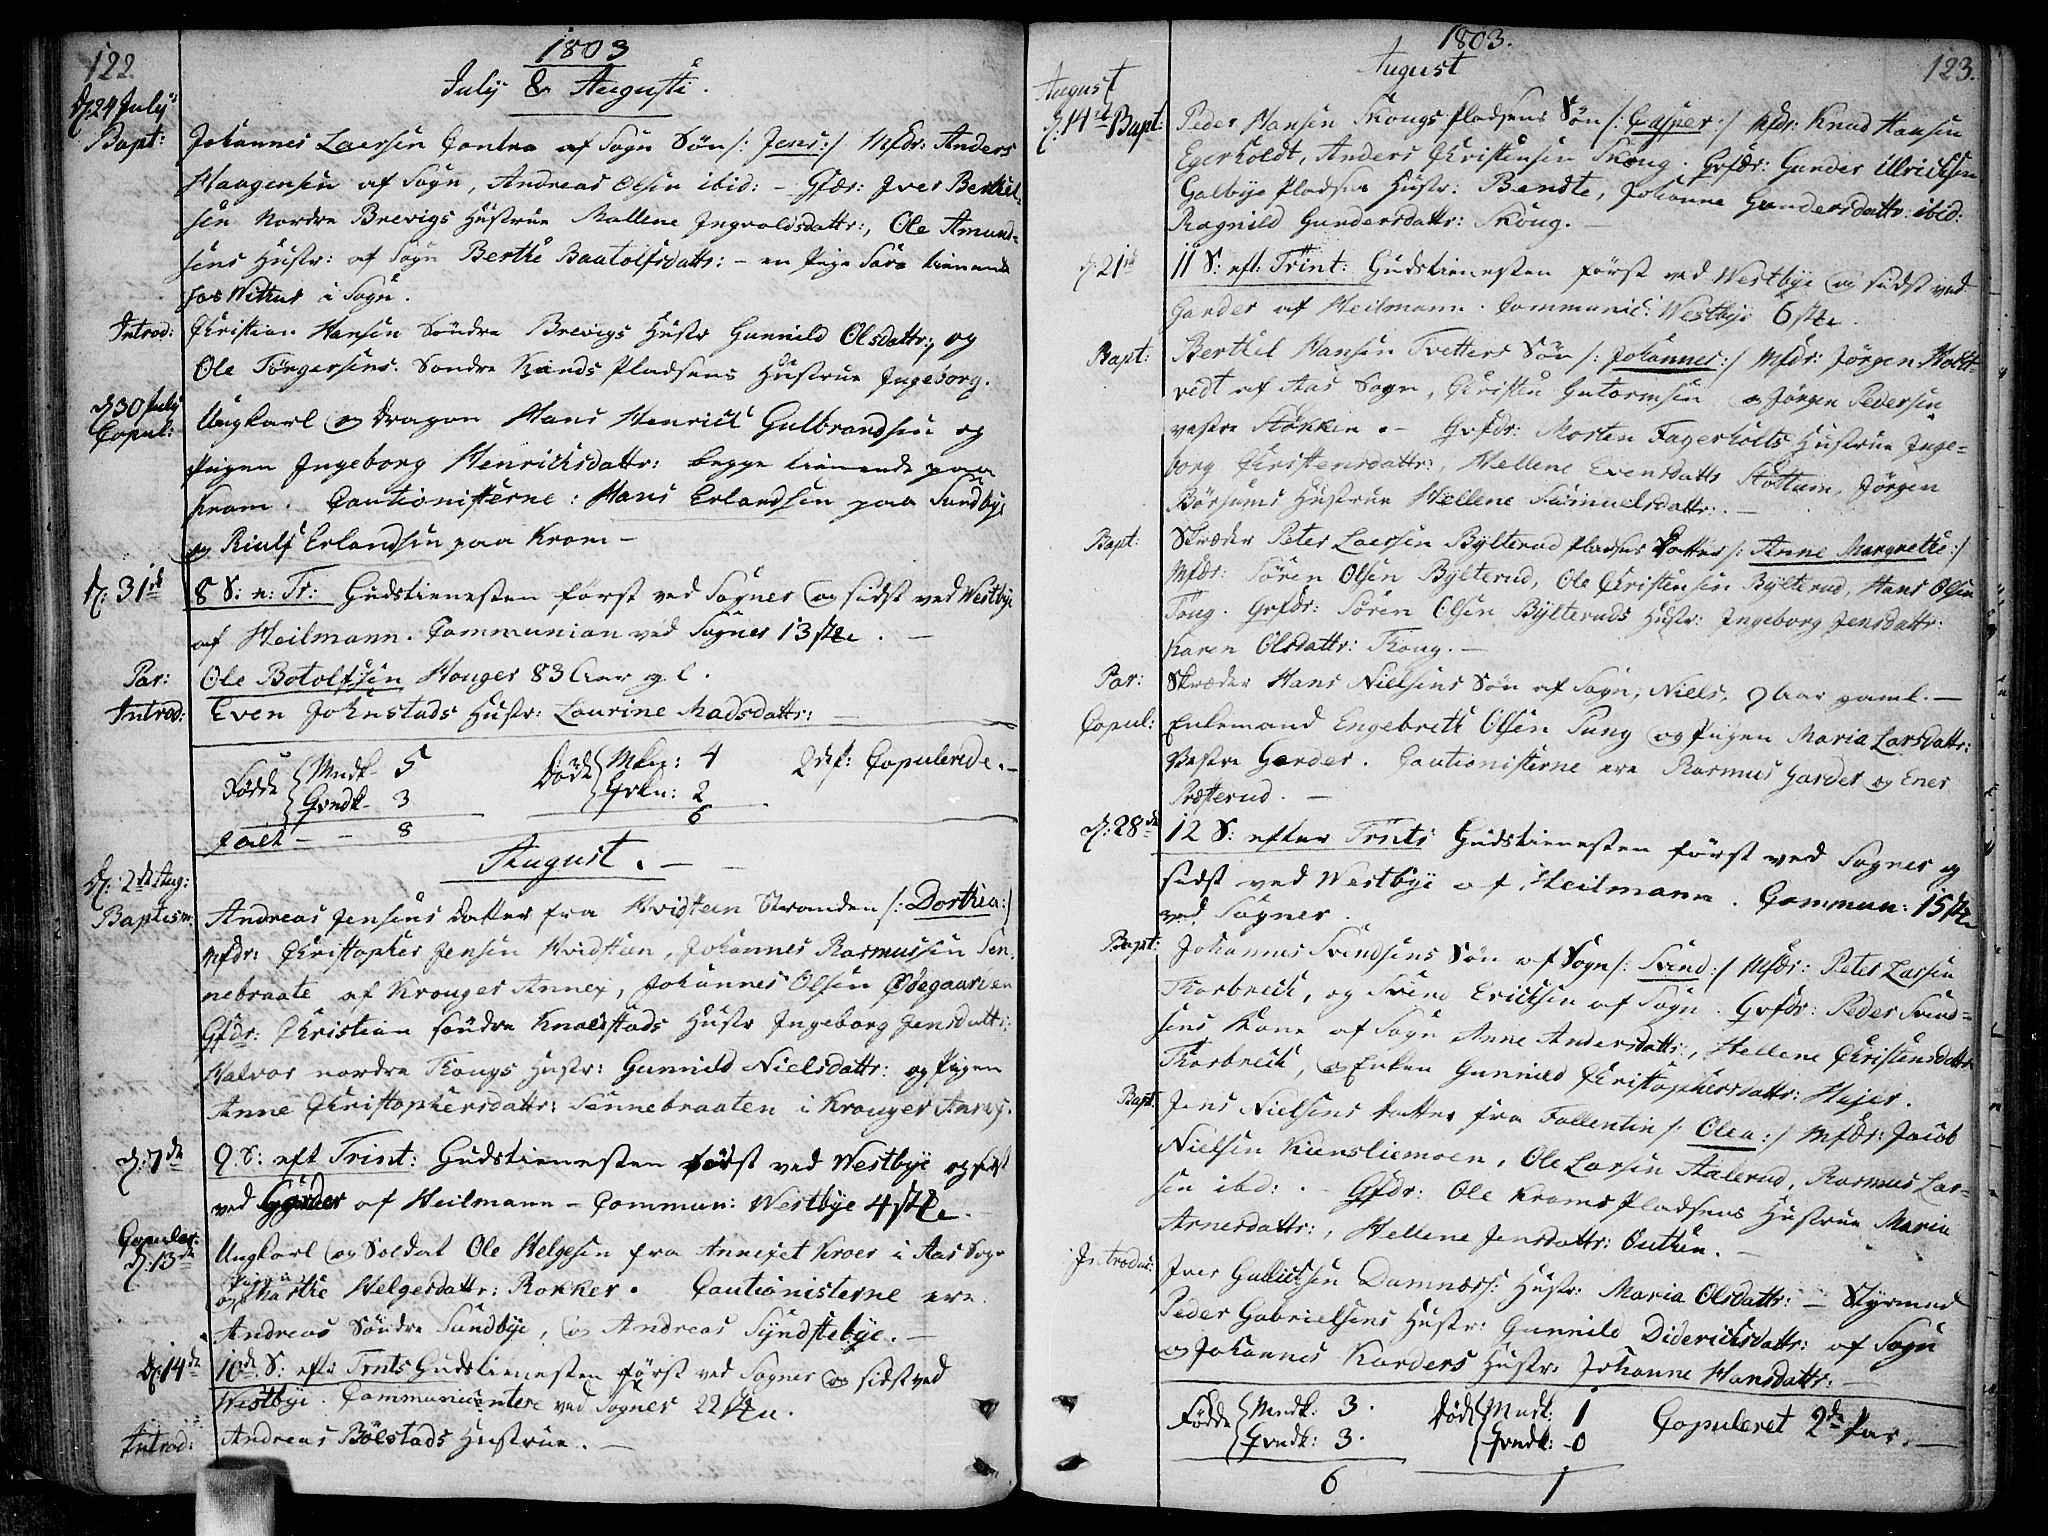 122.
1803
July & Augusti.
d: 24 July
Bapt: Johannes Laersen Contra af Sogn Søn /: Jens :/ Mfdr: Anders
Haagensen af Sogn, Andreas Olsen ibid: - Gfdr: Iver Berthel-
sen Nordre Brevigs Hustrue Mallene Ingvoldsdattr:, Ole Amund-
sens Hustr: af Sogn Berthe Baatolfsdattr: - en Pige Sara tienende
hos Withus i Sogn.
Introd: Christian Hansen Søndre Brevigs Hustr Gunnild Olsdattr:, og
Ole Törgersens Søndre Kinds Pladsens Hustrue Ingeborg.
d: 30 July
Copul: Ungkarl og Dragon Hans Henrich Gulbrandsen og
Pigen Ingeborg Henrichsdattr: begge tienende paa
Krom. Cautionisterne: Hans Erlandsen paa Sundbye
og Riulf Erlandsen paa Krom -
d: 31te 8 S: n: Tr: Gudstienesten først ved Sogner og sidst ved Westbye
af Heilmann. Communion ved Sogner 13 stk.
Par: Ole Botolfsen Houger 83 Aar gl.
Introd: Even Johnstads Hustr: Laurine Madsdattr:
Fødde { Mndk- 5 Døde { Mkn: 4 2de p: Copulerede. -
Qvndk- 3 Qvkn: 2
Jalt - - 8 6
August. -
d: 2de Aug:
Baptism: Andreas Jensens datter fra Hvidsteen Stranden /: Dorthea :/
Mfdr: Christopher Jensen Hvidsteen, Johannes Rasmussen Sen-
nebraate af Krouger Annex, Johannes Olsen Ødegaarden
Gfdr: Christian søndre Knaldstads Hustr Ingeborg Jensdattr:
Halvor nordre Skougs Hustr: Gunnild Nielsdattr: og Pigen
Anne Christophersdattr: Sennebraaten i Krouger Annex.
d: 7de 9. S: eft Trint: Gudstienesten først ved Westbye og sidst
ved Garder af Heilmann - Commun: Westbye 4 stk.
Copuler:
d: 13de Ungkarl og Soldat Ole Helgesen fra Annexet Kroer i Aas Sogn
og Pigen Marthe Helgesdattr: Rokker. Cautionisterne ere
Andreas Søndre Sundbye, og Andreas Syndstebye. -
d: 14de 10de S: eftr Trnts Gudstienesten først ved Sogner og sidst ved
Westbye. Communicentere ved Sogner 22 stk.
Introd: Andreas Bölstads Hustrue. -
123.
1803.
August
August
d: 14de Bapt: Peder Hansen Skougs Pladsens Søn /: Casper :/ Mfdr: Knud Hansen
Egerholdt, Anders Christensen Skoug. Qvfdr: Gunder Ulrichsen
Galbye Pladsens Hustr: Bendte, Johanne Gundersdattr: ibid:
Ragnild Gundersdattr: Skoug. -
d: 21de 11 S: eft: Trint: Gudstienesten først ved Westbye og sidst ved
Garder af Heilmann. Communic: Westbye 6 stk.
Bapt: Berthel Hansen Tvetters Søn /: Johannes :/ Mfdr: Jörgen Holt-
vedt af Aas Sogn, Christen Gutormsen og Jörgen Pedersen
vestre Støkken. - Qvfdr: Morten Fagerholts Hustrue Inge-
borg Christensdattr:, Hellene Evensdattr Støttum, Jörgen
Börsums Hustrue Hellene Samuelsdattr: -
Bapt: Skræder Peter Laersen Bÿlterud pladsens datter /: Anne Margrethe :/
Mfdr: Sören Olsen Bÿlterud, Ole Christensen Bÿlterud, Hans Olsen
Toug. Qvfdr: Sören Olsen Bÿlteruds Hustr: Ingeborg Jensdattr:
Karen Olsdattr: Skoug. -
Par: Skræder Hans Nielsens Søn af Sogn, Niels, 9 Aar gaml. -
Copul: Enkemand Engebreth Olsen Tung og Pigen Maria Larsdattr:
Vestre Garder. Cautionisterne ere Rasmus Garder og Ener
Præsterud. -
d: 28de 12 S: efter Trnts Gudstienesten først ved Sogner og
sidst ved Westbye af Heilmann. Commun: 15 stk
ved Sogner.
Bapt: Johannes Svendsens Søn af Sogn /: Svend :/ Mfdr: Peter Larsen
Skorbrech, og Svend Erichsen af Sogn. Qvfdr: Peder Svend-
sens Kone af Sogn Anne Andersdattr:, Hellene Christensdattr
Skorbrech, og Enken Gunnild Christophersdattr: Hejer.
Bapt: Jens Nielsens datter fra Follentin /: Olea :/ Mfdr: Jacob
Nielsen Kiensliemoen, Ole Larsen Aalerud, Rasmus Lar-
sen ibd: - Gfdr: Ole Kroms Pladsens Hustrue Maria
Arnesdattr:, Hellene Jensdattr: Outhen. -
Introduc: Iver Gullichsen Damnæs: Hustr: Maria Olsdattr: - Styrmand
Peder Gabrielsens Hustr: Gunnild Diderichsdattr: af Sogn
og Johannes Karders Hustr: Johanne Hansdattr: -
Fødde { Mndk: 3. Døde { Mndk: 1 Copuleret 2de Par. -
Qvndk: 3. Qvndk: 0
6 1